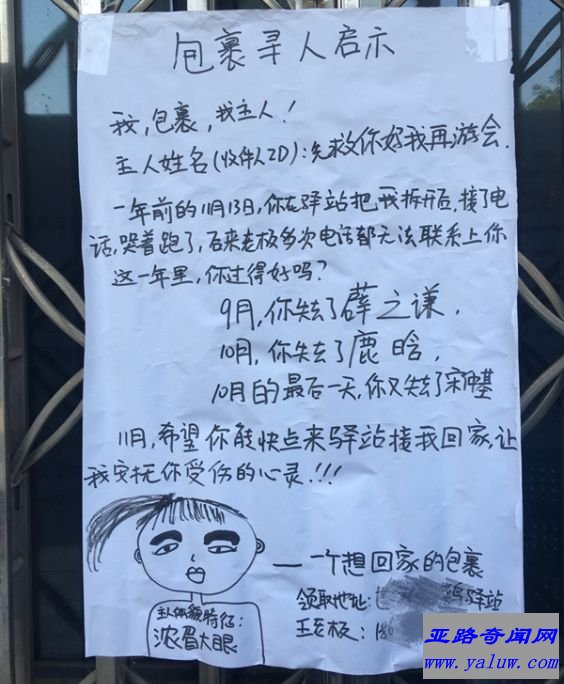 包裹寻人启示
我,包裹,我主人!
主人姓名(收件人ZD):先救你好我再游会.
一年前的11月13日,你在驿站把我拆开后,接了电
话,哭着跑了,后来老板多次电话都无法联系上你
这一年里,你过得好吗?
9月,你失去了薛之谦,
10月,你失去了鹿晗,
10月的最后一天,你又失去了宋仲基
11月,希望你能快点来驿站接我回家,让
我安抚你受伤的心灵!!!
——一个想回家的包裹
领取地址: 驿站
王老板:
主人体貌特征:
浓眉大眼
亚路奇闻网
www.yaluw.com